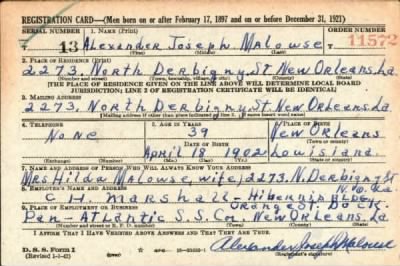 REGISTRATION CARD—(Men born on or after February 17, 1897 and on or before December 31, 1921)
SERIAL NUMBER 1. NAME (Print) ORDER NUMBER
T 13 Alexander Joseph Malowse T 11572
(First) (Middle) (Last)
2. PLACE OF RESIDENCE (Print)
2273. North Derbigny, St. New Orleans, La.
(Number and street) (Town, township, village, or city) (County) (State)
[THE PLACE OF RESIDENCE GIVEN ON THE LINE ABOVE WILL DETERMINE LOCAL BOARD
JURISDICTION; LINE 2 OF REGISTRATION CERTIFICATE WILL BE IDENTICAL]
3. MAILING ADDRESS
2273. North Derbigny St. New Orleans. La.
[Mailing address if other than place indicated on line 2. If same insert word same]
4. TELEPHONE 5. AGE IN YEARS 6. PLACE OF BIRTH
None 39 New Orleans
DATE OF BIRTH (Town or county)
April 18 1902 Louisiana.
(Exchange) (Number) (Mo.) (Day) (Yr.) (State or country)
7. NAME AND ADDRESS OF PERSON WHO WILL ALWAYS KNOW YOUR ADDRESS
Mrs. Hilda Malowse, wife, 2273. N. Derbigny St
N. O. La.
8. EMPLOYER'S NAME AND ADDRESS
C. H. Marshall, Hibernia Bldg.
9. PLACE OF EMPLOYMENT OR BUSINESS Orange St. Dock.
Pan-Atlantic S. S. Co., New Orleans, La.
(Number and street or R. F. D. number) (Town) (County) (State)
I AFFIRM THAT I HAVE VERIFIED ABOVE ANSWERS AND THAT THEY ARE TRUE.
D. S. S. Form 1
(Revised 1-1-42) (over)
Alexander Joseph Malowse
(Registrant's signature)